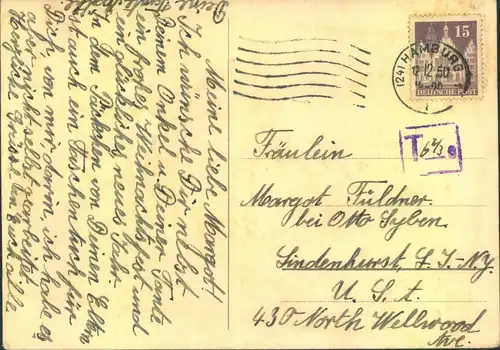 Meine liebe Margot!
Ich wünsche Dir nebst
Deinem Onkel u Deiner Tante
ein frohes Weihnachtsfest und
ein glückliches neues Jahr.
In dem Päckchen von Deinen Eltern
ist auch ein Taschentuch für
Dich von mir darin ich habe es
aber nicht selbst gearbeitet
Herzliche Grüße
Deine
15
DEUTSCHE POST
(24) HAMBURG
12.50
T
Fräulein
Margot Füldner
bei Otto Syben
Lindenhurst, L. I-N.Y.
U. S. A.
430 North Wellwood
Ave.